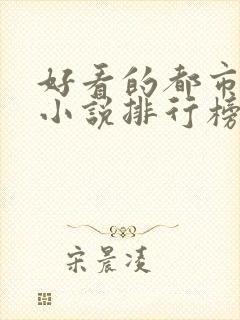 好看的都市
小说排行榜
宋晨凌